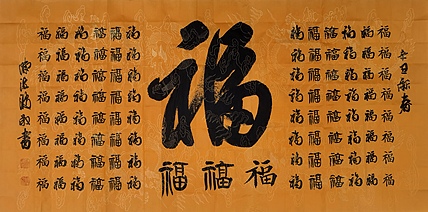 新春
福福福福福福福福福
福福福福福福福福福
福福福福福福福福福
福福福福福福福福福
福福福福福福福福福
福福福福福福福福福
福
福福福
福福福福福福福福福
福福福福福福福福福
福福福福福福福福福
福福福福福福福福福
福福福福福福福福福
福福福福福福福福福
书